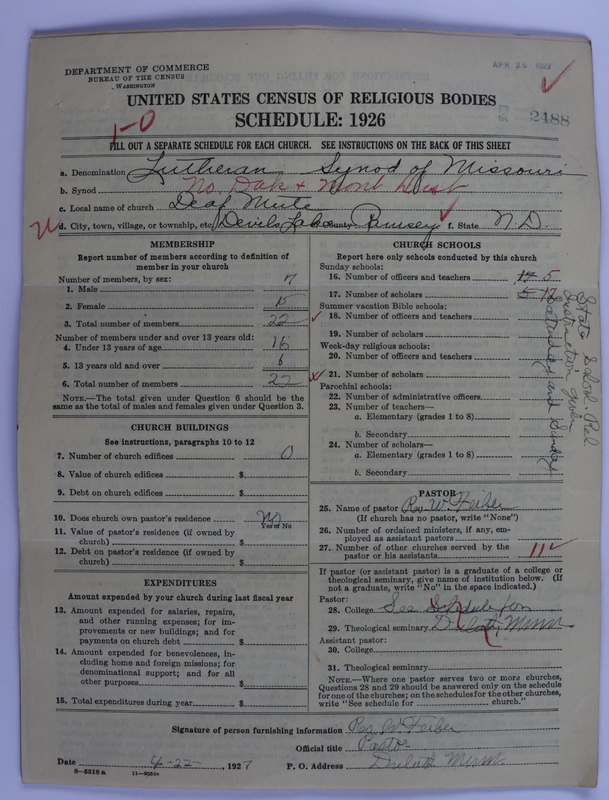 DEPARTMENT OF COMMERCE
BUREAU OF THE CENSUS
WASHINGTON
APR 1927
UNITED STATES CENSUS OF RELIGIOUS BODIES
SCHEDULE: 1926
2488
1-0
FILL OUT A SEPARATE SCHEDULE FOR EACH CHURCH. SEE INSTRUCTIONS ON THE BACK OF THIS SHEET
a. Denomination Lutheran Synod of Missouri
b. Synod No. Dak & Mont Dist
c. Local name of church Deaf Mute
d. City, town, village, or township, etc. Devils Lake County Ramsey f. State N.D.
MEMBERSHIP
Report number of members according to definition of
member in your church
Number of members, by sex:
1. Male 7
2. Female 15
3. Total number of members 22
Number of members under and over 13 years old:
4. Under 13 years of age 16
5. 13 years old and over 6
6. Total number of members 22
NOTE.—The total given under Question 6 should be
same as the total of males and females given under Question 3.
CHURCH BUILDINGS
See instructions, paragraphs 10 to 12
7. Number of church edifices 0
8. Value of church edifices $
9. Debt on church edifices $
10. Does church own pastor's residence No
Yes or No
11. Value of pastor's residence (if owned by
church) $
12. Debt on pastor's residence (if owned by
church) $
EXPENDITURES
Amount expended by your church during last fiscal year
13. Amount expended for salaries, repairs,
and other running expenses; for im-
provements or new buildings; and for
payments on church debt $
14. Amount expended for benevolences, in-
cluding home and foreign missions; for
denominational support; and for all
other purposes $
15. Total expenditures during year $
CHURCH SCHOOLS
Report here only schools conducted by this church
Sunday schools:
16. Number of officers and teachers 17 5
17. Number of scholars 5 17
Summer vacation Bible schools:
18. Number of officers and teachers
19. Number of scholars
Week-day religious schools:
20. Number of officers and teachers
21. Number of scholars
Parochial schools:
22. Number of administrative officers
23. Number of teachers—
a. Elementary (grades 1 to 8)
b. Secondary
24. Number of scholars—
a. Elementary (grades 1 to 8)
b. Secondary
State School Rel
Instruction given
Saturday and Sunday
PASTOR
25. Name of pastor Rev W. Feiber
(If church has no pastor, write "None")
26. Number of ordained ministers, if any, em-
ployed as assistant pastors
27. Number of other churches served by the
pastor or his assistants 11
If pastor (or assistant pastor) is a graduate of a college or
theological seminary, give name of institution below. (If
not a graduate, write "No" in the space indicated.)
Pastor:
28. College See Schedule for
29. Theological seminary Duluth, Minn
Assistant pastor:
30. College
31. Theological seminary
NOTE.—Where one pastor serves two or more churches,
Questions 28 and 29 should be answered only on the schedule
for one of the churches; on the schedules for the other churches,
write "See schedule for church."
Signature of person furnishing information W. Feiber
Official title Pastor
Date 4-22, 1927 P. O. Address Duluth Minn
8-5518a